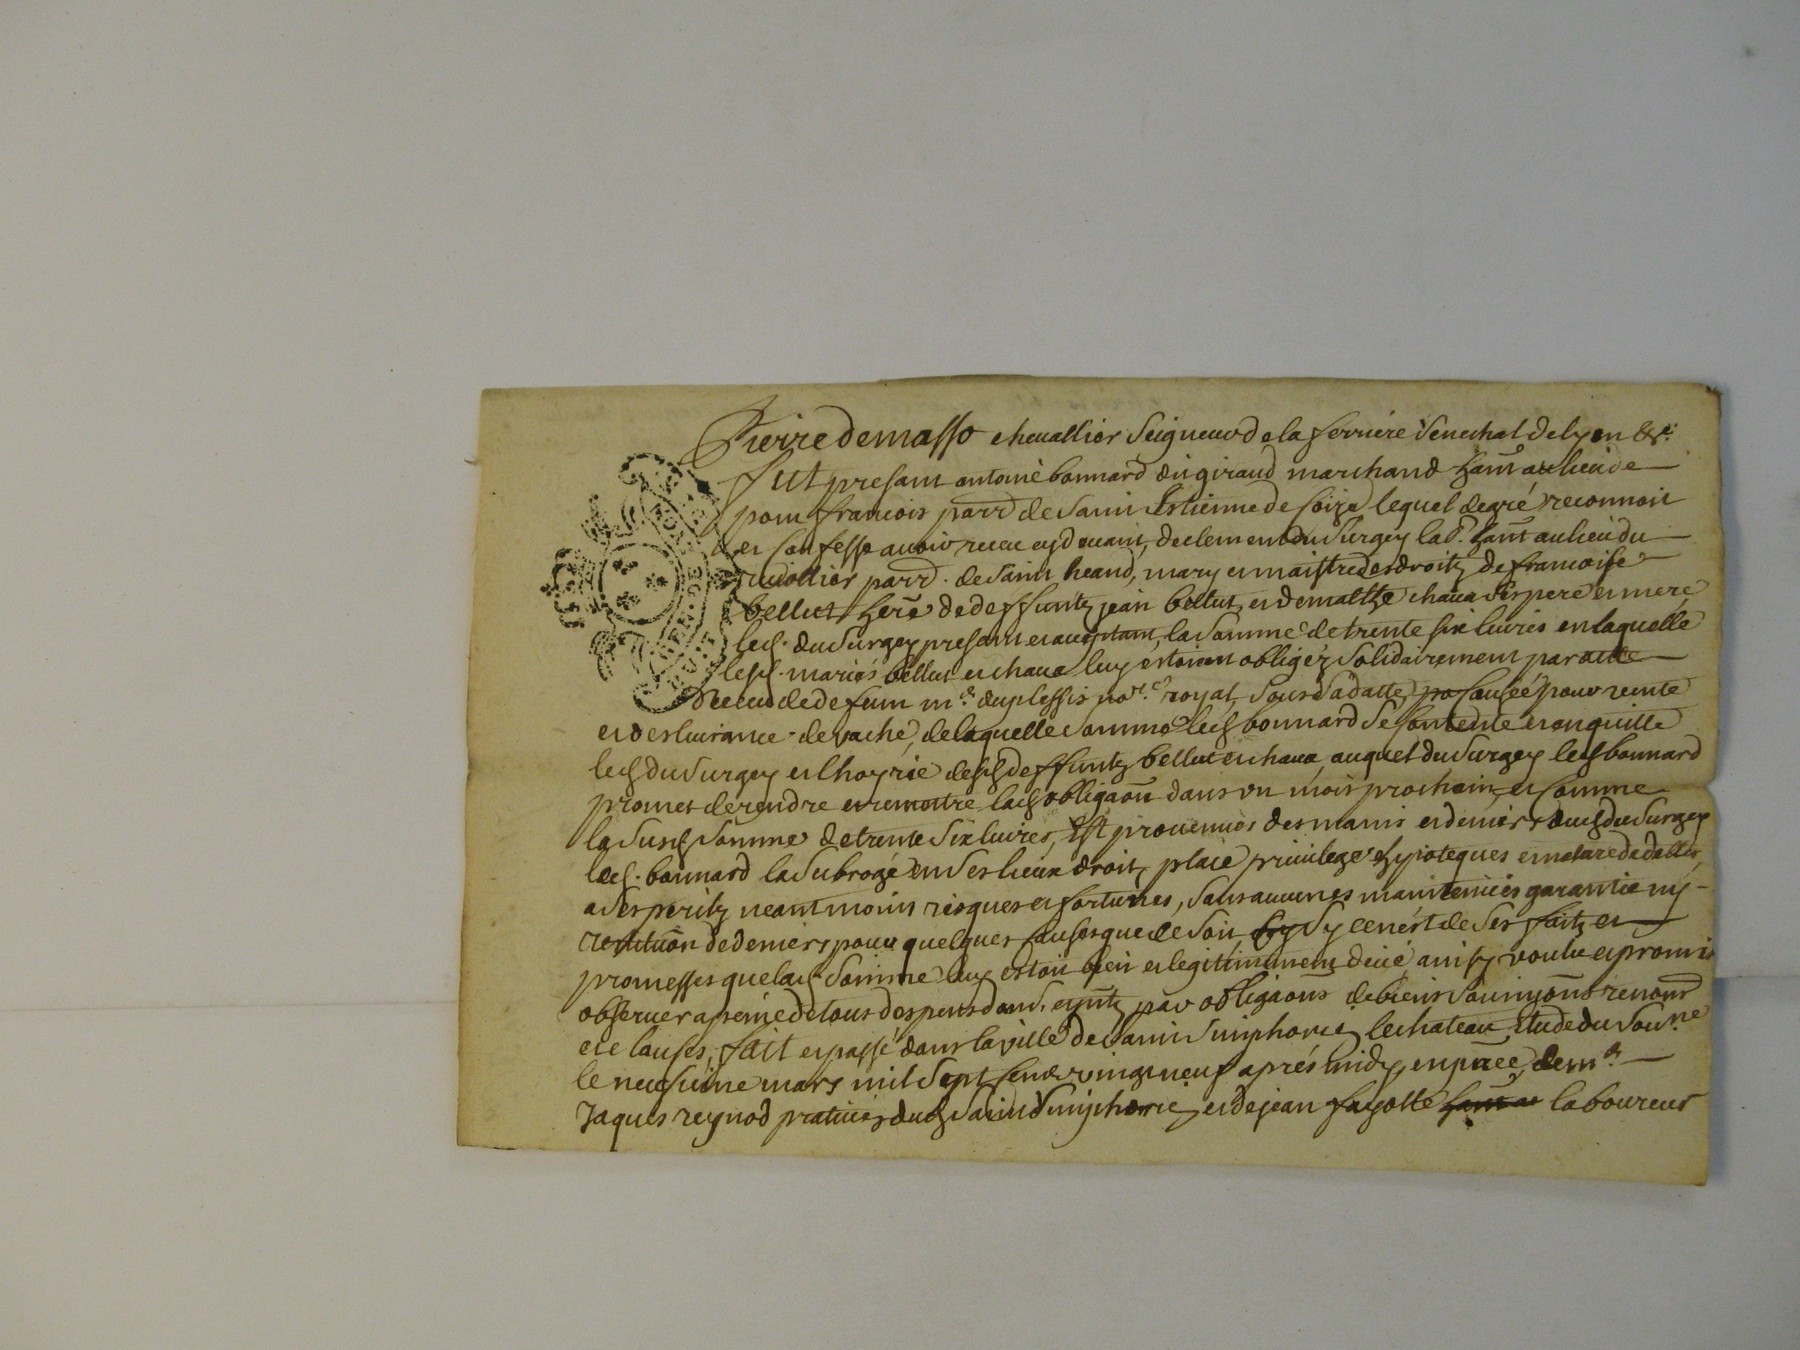 Pierre de masso chevallier Seigneur de la ferriére Senechal de lyon &c.
Fut presant antoine bonnard dit giraud marchand hant au lieu de
pom francois parr de Saint Estienne de Coize lequel de gré reconnoit
et Confesse avoir receu cyd evant, de clement du Surgey lab.r hant au lieu du
parr. de Saint heand, mary et maistre des droitz de francoise
bellut here de deffuntz jean bellut et de malthe chaua Ses pere et mere
led. du Surgey presant et acceptant, la Somme de trente Six livres en laquelle
lesd. mariés bellut et chaua luy éstoient obligéz Solidairement par acte
receu de defunt m.e duplessis no.re royal, Sous Sa datte Causée pour vente
et deslivrance de vache, de laquelle Somme led bonnard Se Contente et en quitte
led du Surgey et l'hoyrie desd deffuntz bellut et chaua, auquel du Surgey led bonnard
promet de rendre et remettre lad obligaon dans un mois prochain, et Comme
la Susd Somme de trente Six livres, Est provenües des mains et deniers dud du Surgey
led. bonnard la Subrogé en Ses lieux droitz place privilege hypoteques et nature de debtes,
a Ses perilz neantmoins risques et fortunes, Sans aucunes maintenües garantie ny
restitüon de deniers pour quelques Causes que ce Soit, Sy ce nést de Ses faitz et
promesses que lad. Somme luy estoit bien et legitimement deüe, ainsy voulu et promis
observer a peine de tous despens dom. et intz par obligaons de biens Soumissons renond
et clauses, fait et passé dans la ville de Saint Simphorien le chateau Etude du Sou.ne
le neufvime mars mil Sept Cend vingt neuf aprés midy, en pñce de m.e
Jaques reynod praticien dud Saint Simphorien et de jean fayolle laboureur